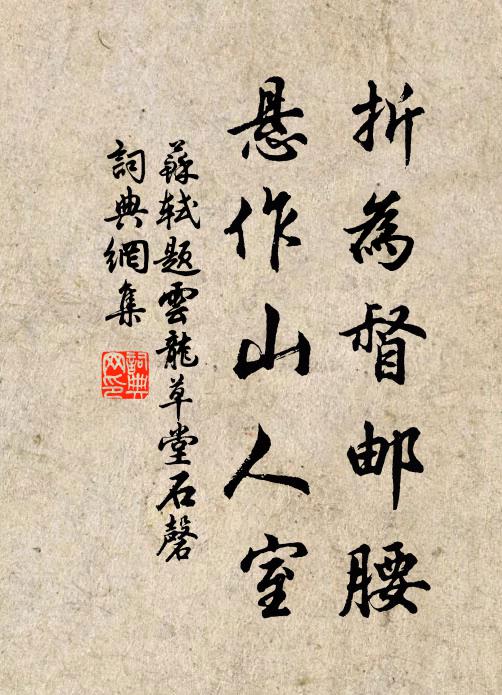 折為督邮腰
悬作山人室
蘇軾题雲龍草堂石磬
詞典網集
詞典网印